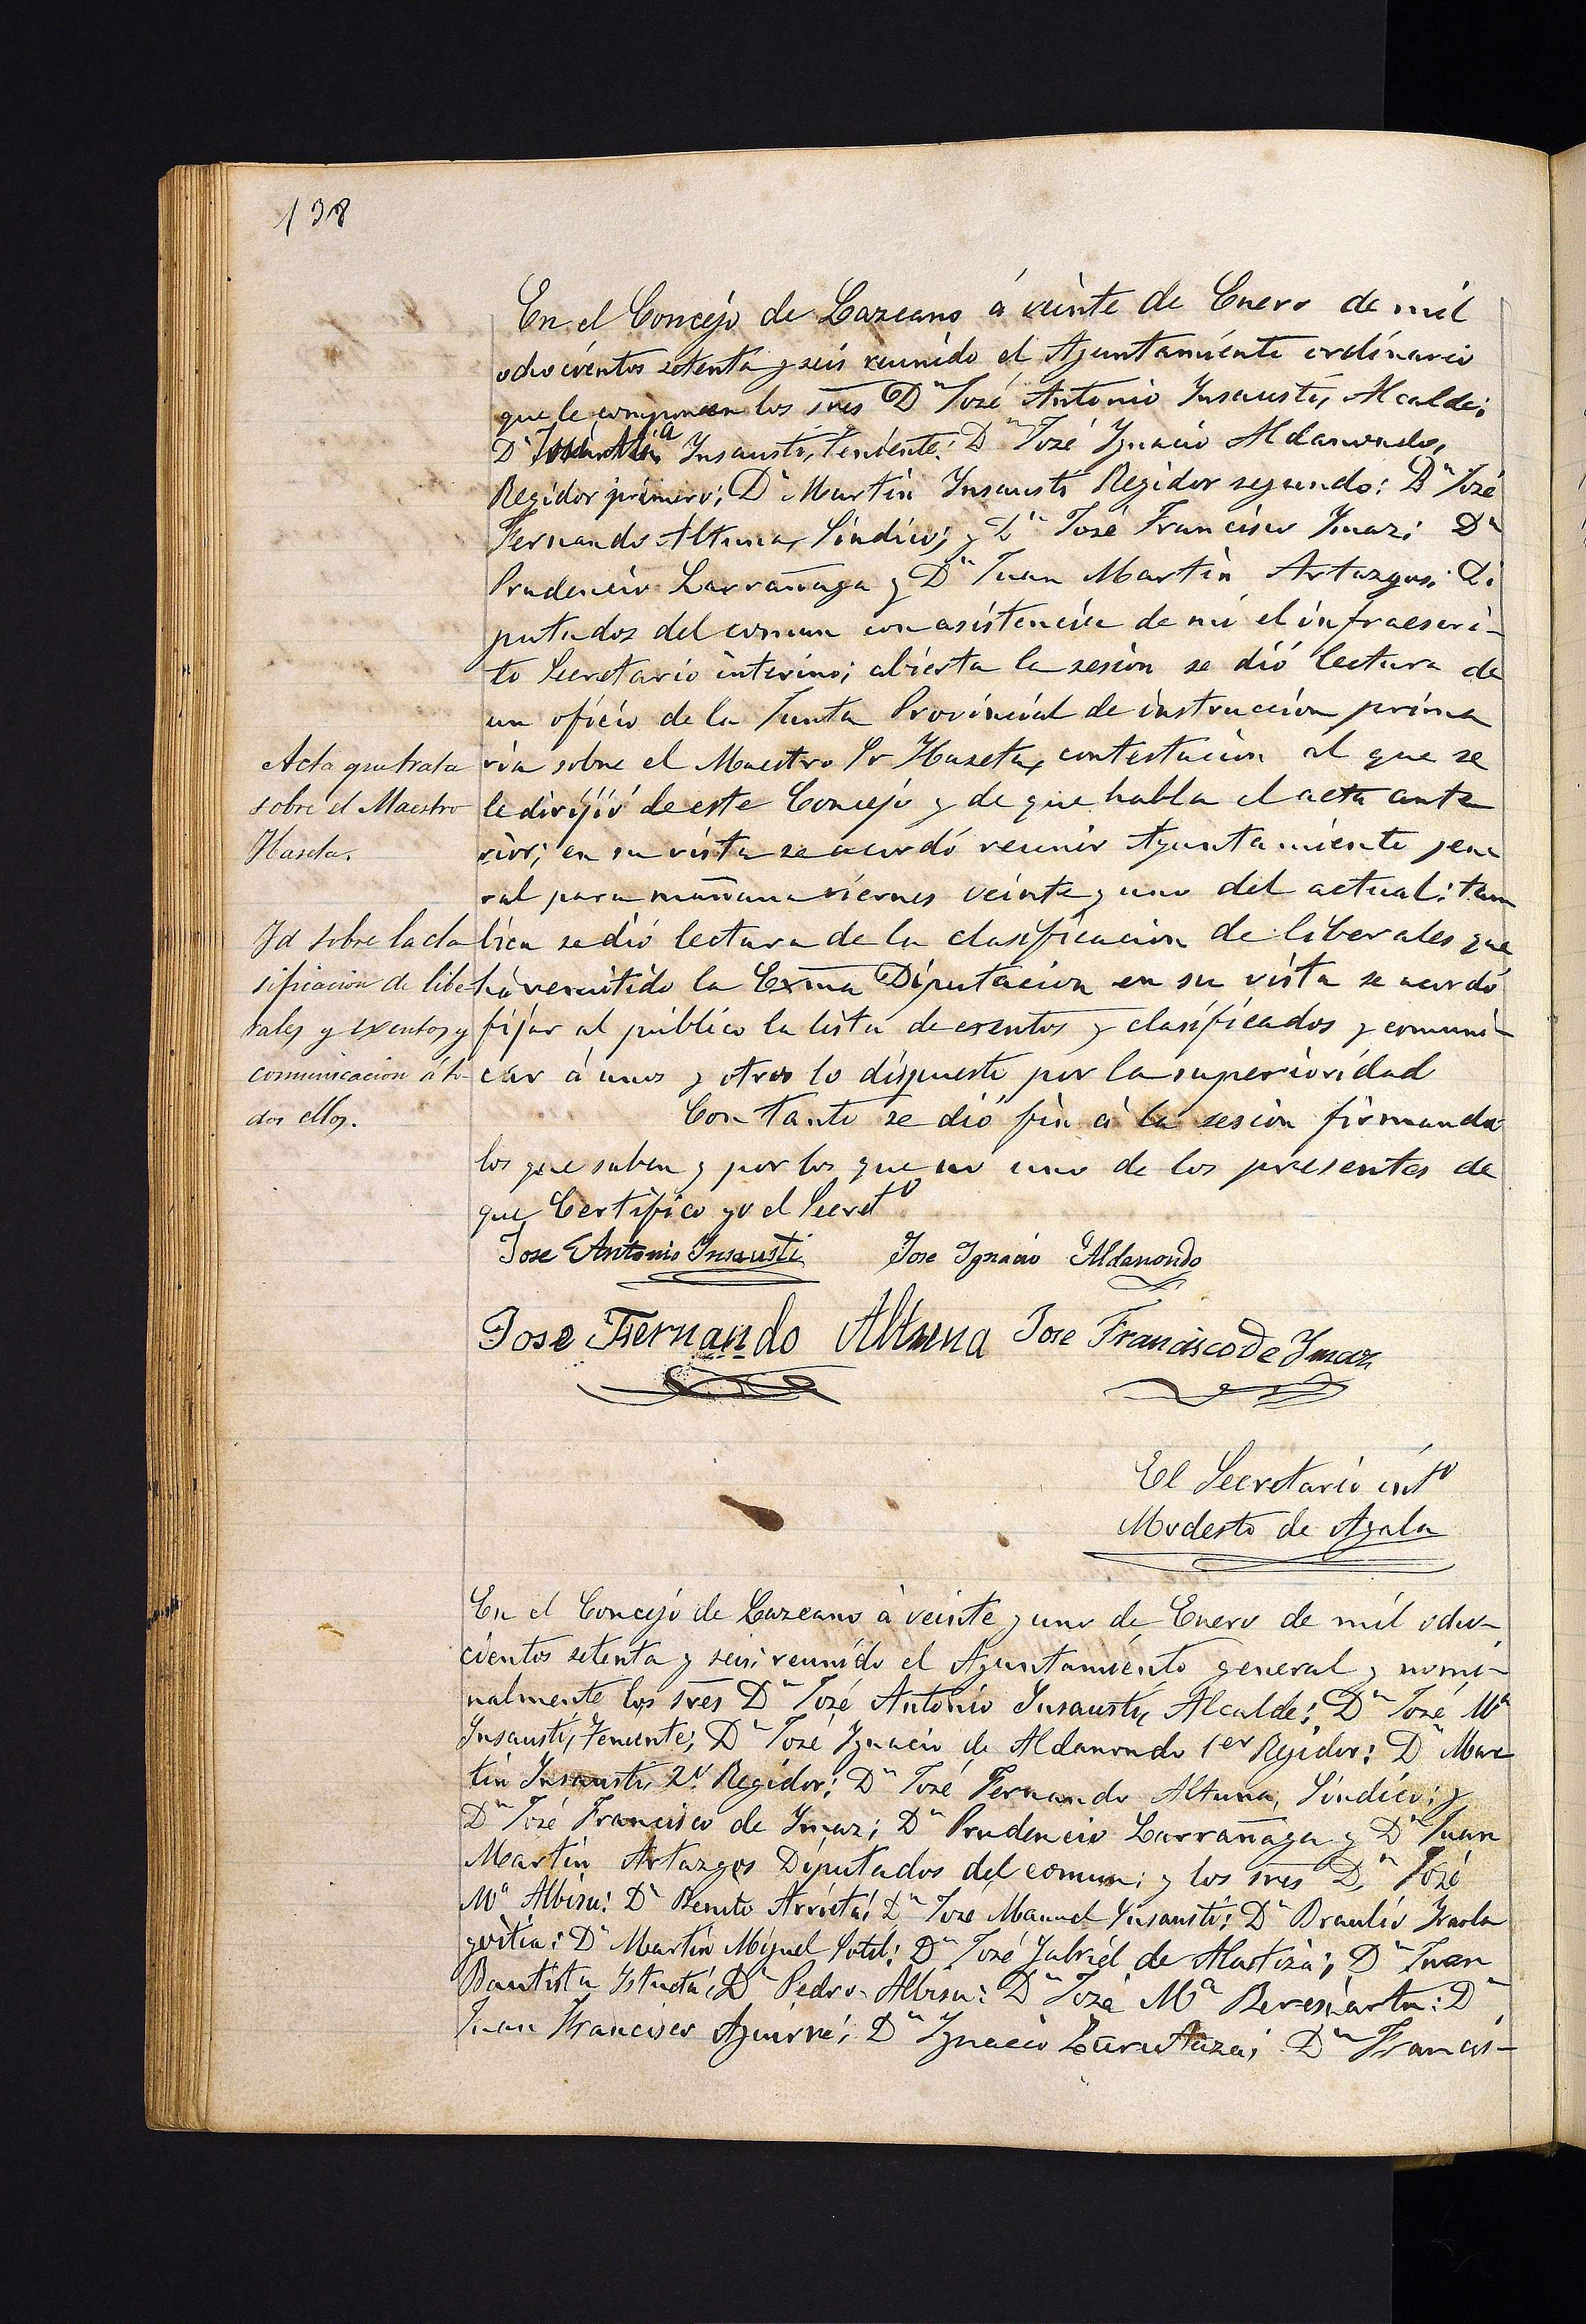 138
En el Concejo de Lazcano á veinte de Enero de mil
ochocientos setenta y seis reunido el Ayuntamiento ordinario
que le componen los Sres Dn José Antonio Insausti, Alcalde;
Dn José Ma Insausti, Teniente: Dn José Ygnacio Aldamondo,
Regidor primero; Dn Martin Ynsausti Regidor segundo: Dn José
Fernando Altuna, Sindico; y Dn José Francisco Ymaz; Dn
Prudencio Larrañaga y Dn Juan Martin Artazgos; Di
putados del comun con asistencia de mi el infraescri-
to Secretario interino; abierta la sesion se dió lectura de
un oficio de la Junta Provincial de instruccion prima
ria sobre el Maestro Sr Haseta, contestacion al que se
le dirijió de este Concejo y de que habla el acta ante
rior; en su vista se acordó reunir Ayuntamiento jene
ral para mañana viernes veinte y uno del actual: tam
bien se dió lectura de la clasificacion de liberales que
há remitido la Exma Diputacion en su vista se acordó
fijar al público la lista de esentos y clasificados y comuni-
car á unos y otros lo dispuesto por la superioridad
Con tanto se dió fin á la sesion firmando
los que saben y por los que no uno de los presentes de
que Certifico yo el Secreto
Acta que trata
sobre el Maestro
Haseta.
Yd sobre la cla
sificacion de libe
rales y exentos y
comunicacion á to-
dos ellos.
Jose Antonio Insausti Jose Ignacio Aldamondo
Jose Fernando Altuna Jose Francisco de Ymaz
El Secretario into
Modesto de Ayala
En el Concejo de Lazcano á veinte y uno de Enero de mil ocho-
cientos setenta y seis; reunido el Ayuntamiento general y nomi-
nalmente los Sres Dn José Antonio Insausti, Alcalde; Dn José Ma
Insausti, Teniente; Dn José Ygnacio de Aldamondo 1er Regidor: Dn Mar
tin Insausti, 2º Regidor; Dn José Fernando Altuna, Sindico; y
Dn José Francisco de Ymaz; Dn Prudencio Larrañaga y Dn Juan
Martin Artazgos Diputados del comun; y los Sres Dn José
Ma Albisu: Dn Benito Arrieta; Dn José Manuel Ynsausti; Dn Braulio Yraola
goitia: Dn Martin Miguel Sotil: Dn José Gabriel de Alustiza; Dn Juan
Bautista Ystueta; Dn Pedro Albisu: Dn José Ma Beresiartu: Dn
Juan Francisco Aguirre; Dn Ygnacio Zurutuza; Dn Francis-